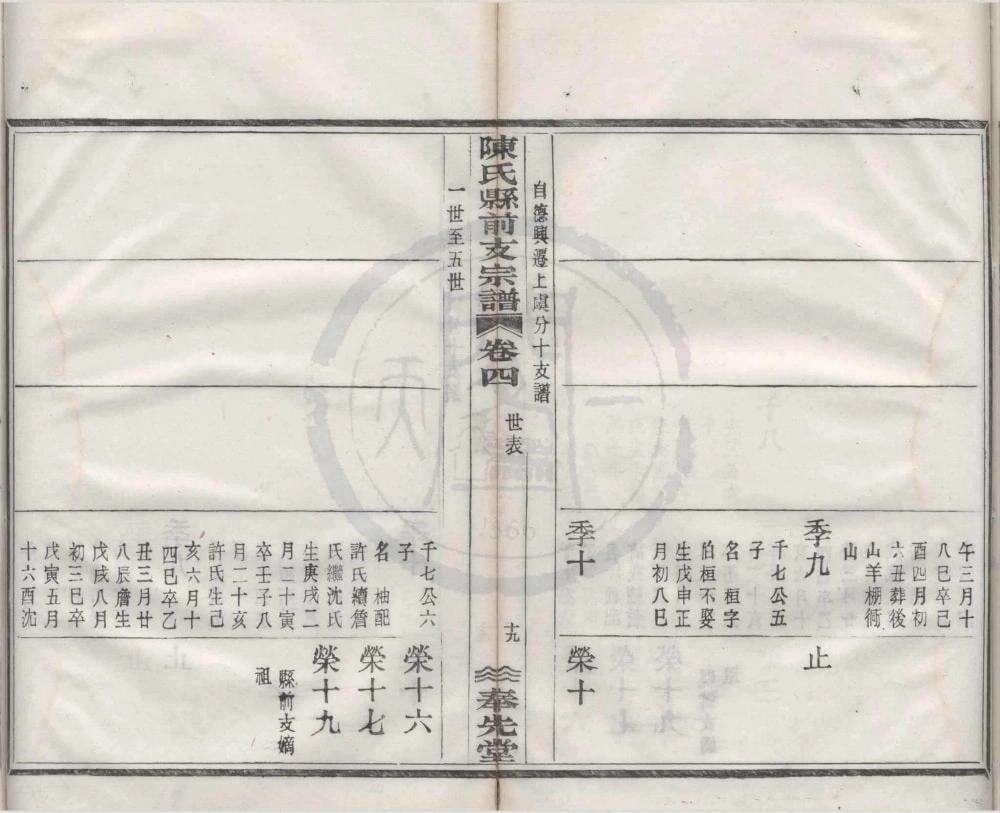 午三月十
八巳卒己
酉四月初
六丑葬後
山羊棚衕
山
季九
千七公五
子
名桓字
伯桓不娶
生戊申正
月初八巳
季十
止
榮十
自德興遷上虞分十支譜
陳氏縣前支宗譜
卷四
世表
十九
奉先堂
一世至五世
千七公六
子
名柚配
許氏續詹
氏繼沈氏
生庚戌二
月二十寅
卒壬子八
月二十亥
許氏生己
亥六月十
四巳卒乙
丑三月廿
八辰詹生
戊戌八月
初三巳卒
戊寅五月
十六酉沈
榮十六
榮十七
榮十九
縣前支嫡
祖